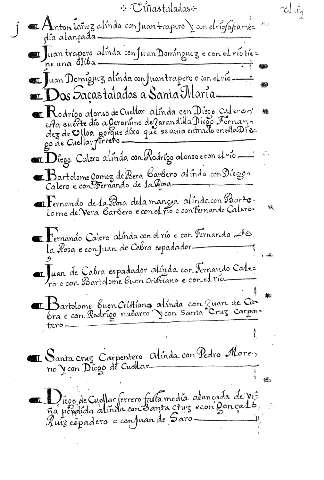 Viñas taladas
Anton Yañez alinda con Juan trapero y con el rio
dia alançada
Juan trapero alinda con Juan Dominguez e con el rio tie-
ne una
Juan Deminguez alinda con Juan trapero e con el rio
Dos Haças taladas a Santa Maria
Rodrigo alonso de Cuellar alinda con Diego Calero
dio a Geronimo de Diego Fernan-
dez de Ulloa porque dixo que se avia entrado en ello Die-
go de Cuellar ferrero
Diego Calero alinda con Rodrigo alonso e con el rio
Bartolome Gomez de Vera Barbero alinda con Diego
Calero e con Fernando de la Rosa
Fernando de la Rosa de la mança alinda con Barto-
lome de Vera Barbero e con el rio e con Fernando Calero
Fernando Calero alinda con el rio e con Fernando de
la Rosa e con Juan de Cabra espadador
Juan de Cabra espadador alinda con Fernando Cale-
ro e con Bartolome buen Cristiano e con el rio
Bartolome buen Cristiano alinda con Juan de Ca-
bra e con Rodrigo nabarro y con Santa Cruz Carpin-
tero
Santa Cruz Carpentero alinda con Pedro More-
no y con Diego de Cuellar
Diego de Cuellar ferrero falta media alançada de vi-
ña perdida alinda con Santa Cruz e con Gonçalo
Ruiz espadero e con Juan de Haro